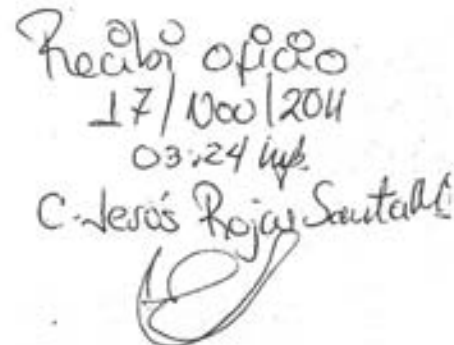 Recibí oficio
17/Nov/2011
03:24
C. Jesús Rojas Santa